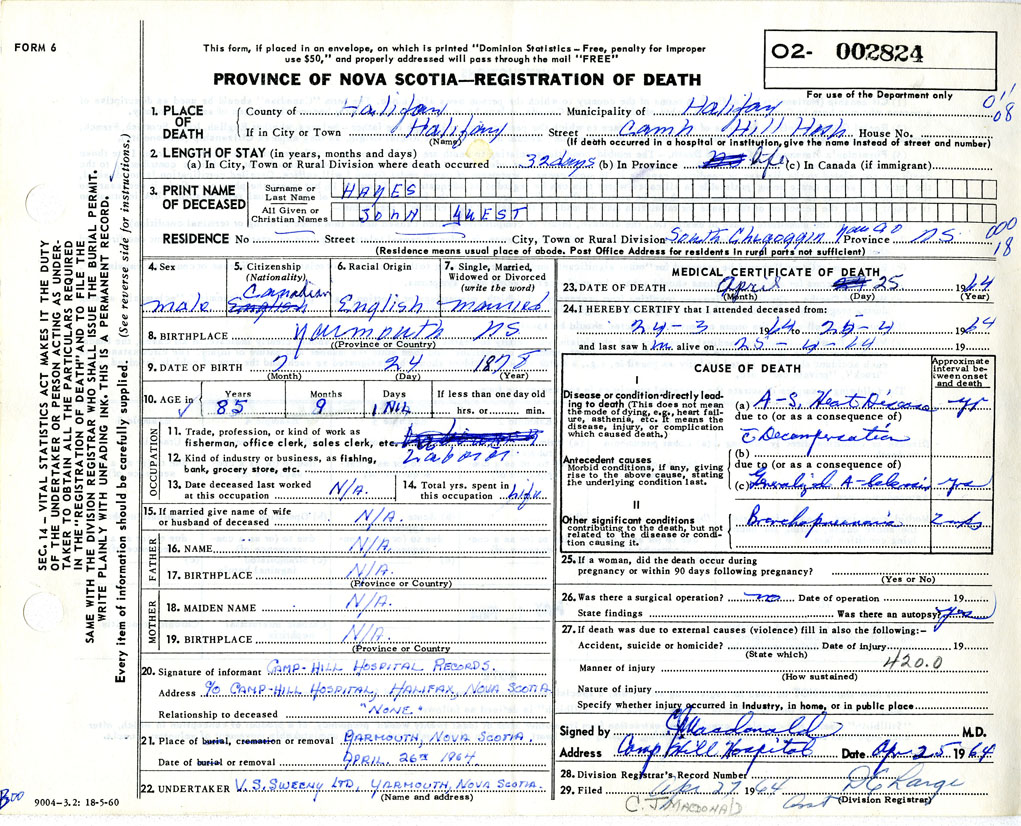 FORM 6
This form, if placed in an envelope, on which is printed "Dominion Statistics – Free, penalty for improper
use $50," and properly addressed will pass through the mail "FREE"
PROVINCE OF NOVA SCOTIA—REGISTRATION OF DEATH
O2- 002824
For use of the Department only
011
08
1. PLACE OF DEATH
County of Halifax Municipality of Halifax
If in City or Town Halifax Street Camp Hill Hosp House No.
(Name) (If death occurred in a hospital or institution, give the name instead of street and number)
2. LENGTH OF STAY (in years, months and days)
(a) In City, Town or Rural Division where death occurred 32 days (b) In Province life (c) In Canada (if immigrant)
3. PRINT NAME OF DECEASED
Surname or Last Name HAYES
All Given or Christian Names JOHN GUEST
000
18
RESIDENCE No Street City, Town or Rural Division South Chegoggin Yar Co Province NS
(Residence means usual place of abode. Post Office Address for residents in rural parts not sufficient)
4. Sex male
5. Citizenship (Nationality) Canadian English
6. Racial Origin English
7. Single, Married, Widowed or Divorced (write the word) married
8. BIRTHPLACE Yarmouth NS
(Province or Country)
9. DATE OF BIRTH 7 24 1878
(Month) (Day) (Year)
10. AGE in Years 85 Months 9 Days 1 If less than one day old hrs. or min.
OCCUPATION
11. Trade, profession, or kind of work as
fisherman, office clerk, sales clerk, etc.
12. Kind of industry or business, as fishing, Laborer
bank, grocery store, etc.
13. Date deceased last worked at this occupation N/A.
14. Total yrs. spent in this occupation
15. If married give name of wife or husband of deceased N/A.
FATHER
16. NAME N/A.
17. BIRTHPLACE N/A.
(Province or Country)
MOTHER
18. MAIDEN NAME N/A.
19. BIRTHPLACE N/A.
(Province or Country)
20. Signature of informant CAMP-HILL HOSPITAL RECORDS.
Address c/o CAMP-HILL HOSPITAL, HALIFAX, NOVA SCOTIA
Relationship to deceased "NONE."
21. Place of burial, cremation or removal YARMOUTH, NOVA SCOTIA
Date of burial or removal APRIL 26th 1964
22. UNDERTAKER V.S. SWEENY LTD, YARMOUTH, NOVA SCOTIA.
(Name and address)
MEDICAL CERTIFICATE OF DEATH
23. DATE OF DEATH April 25 1964
(Month) (Day) (Year)
24. I HEREBY CERTIFY that I attended deceased from:
24-3 1964 25-4 to 1964
and last saw him alive on 25-4-64 19
CAUSE OF DEATH
Approximate interval between onset and death
I
Disease or condition directly leading to death (This does not mean the mode of dying, e.g., heart failure, asthenia, etc. It means the disease, injury, or complication which caused death.)
(a) A-S. Heart Disease yr
due to (or as a consequence of)
c̄ Decompensation
Antecedent causes
Morbid conditions, if any, giving rise to the above cause, stating the underlying condition last.
(b)
due to (or as a consequence of)
(c) Generalized A-Sclerosis yrs
II
Other significant conditions
contributing to the death, but not related to the disease or condition causing it.
Bronchopneumonia 2 wks
25. If a woman, did the death occur during
pregnancy or within 90 days following pregnancy?
(Yes or No)
26. Was there a surgical operation? no Date of operation 19
State findings Was there an autopsy? yes
27. If death was due to external causes (violence) fill in also the following:-
Accident, suicide or homicide? Date of injury 19
(State which)
420.0
Manner of injury
(How sustained)
Nature of injury
Specify whether injury occurred in industry, in home, or in public place
Signed by CJ Macdonald M.D.
Address Camp Hill Hospital Date Apr 25 1964
28. Division Registrar's Record Number
29. Filed Apr 27 1964 D C Large
(Division Registrar)
C. J. MACDONALD
Asst
SEC. 14 – VITAL STATISTICS ACT MAKES IT THE DUTY
OF THE UNDERTAKER OR PERSON ACTING AS UNDER-
TAKER TO OBTAIN ALL THE PARTICULARS REQUIRED
IN THE "REGISTRATION OF DEATH" AND TO FILE THE
SAME WITH THE DIVISION REGISTRAR WHO SHALL ISSUE THE BURIAL PERMIT.
WRITE PLAINLY WITH UNFADING INK. THIS IS A PERMANENT RECORD.
Every item of information should be carefully supplied. (See reverse side for instructions.)
9004–3.2: 18-5-60